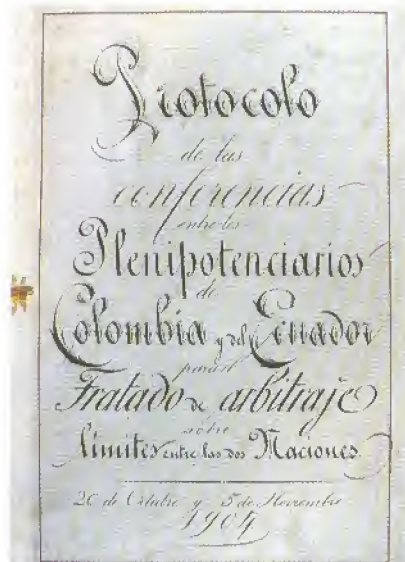 Protocolo
de las
conferencias
entre los
Plenipotenciarios
de
Colombia y del Ecuador
para el
Tratado de arbitraje
sobre
límites entre las dos Naciones.
20 de Octubre y 5 de Noviembre
1904